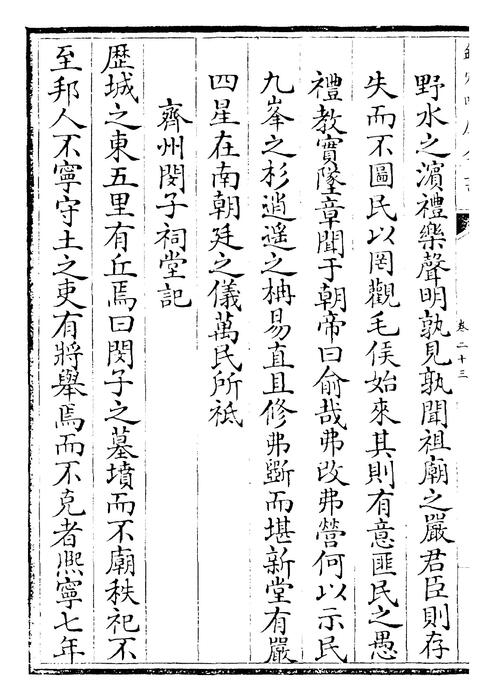 卷二十三
野水之濵禮樂聲明孰見孰聞祖廟之嚴君臣則存
失而不圖民以罔觀毛侯始來其則有意匪民之愚
禮教實墜章聞于朝帝曰俞哉弗改弗營何以示民
九峯之杉逍遥之柟易直且修弗斵而堪新堂有嚴
四星在南朝廷之儀萬民所祗
齊州閔子祠堂記
歷城之東五里有丘焉曰閔子之墓墳而不廟秩祀不
至邦人不寧守土之吏有將舉焉而不克者熈寧七年